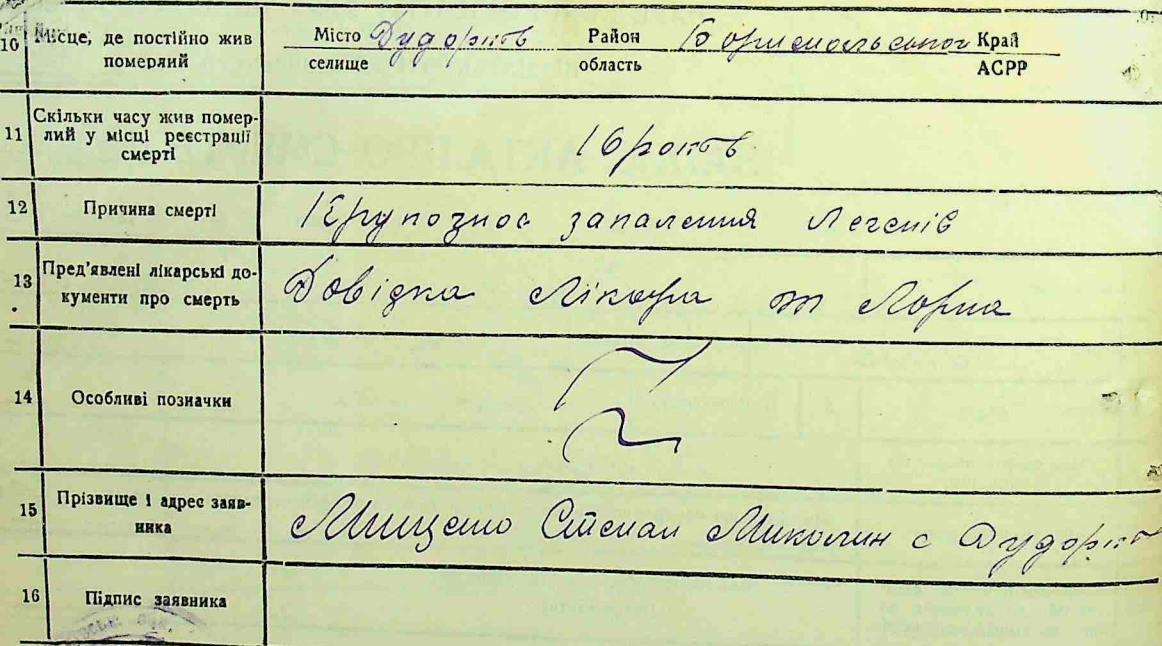 10 Місце, де постійно жив Місто Дударків Район Бориспольський Край
померлий селище область АСРР
11 Скільки часу жив помер-
лий у місці реєстрації
смерті
16 років
12 Причина смерті Крупозноє запалення Легенів
13 Пред'явлені лікарські до-
кументи про смерть
Довідка Лікаря
14 Особливі позначки
15 Прізвище і адрес заяв-
ника
Степан Миколин с Дударків
16 Підпис заявника